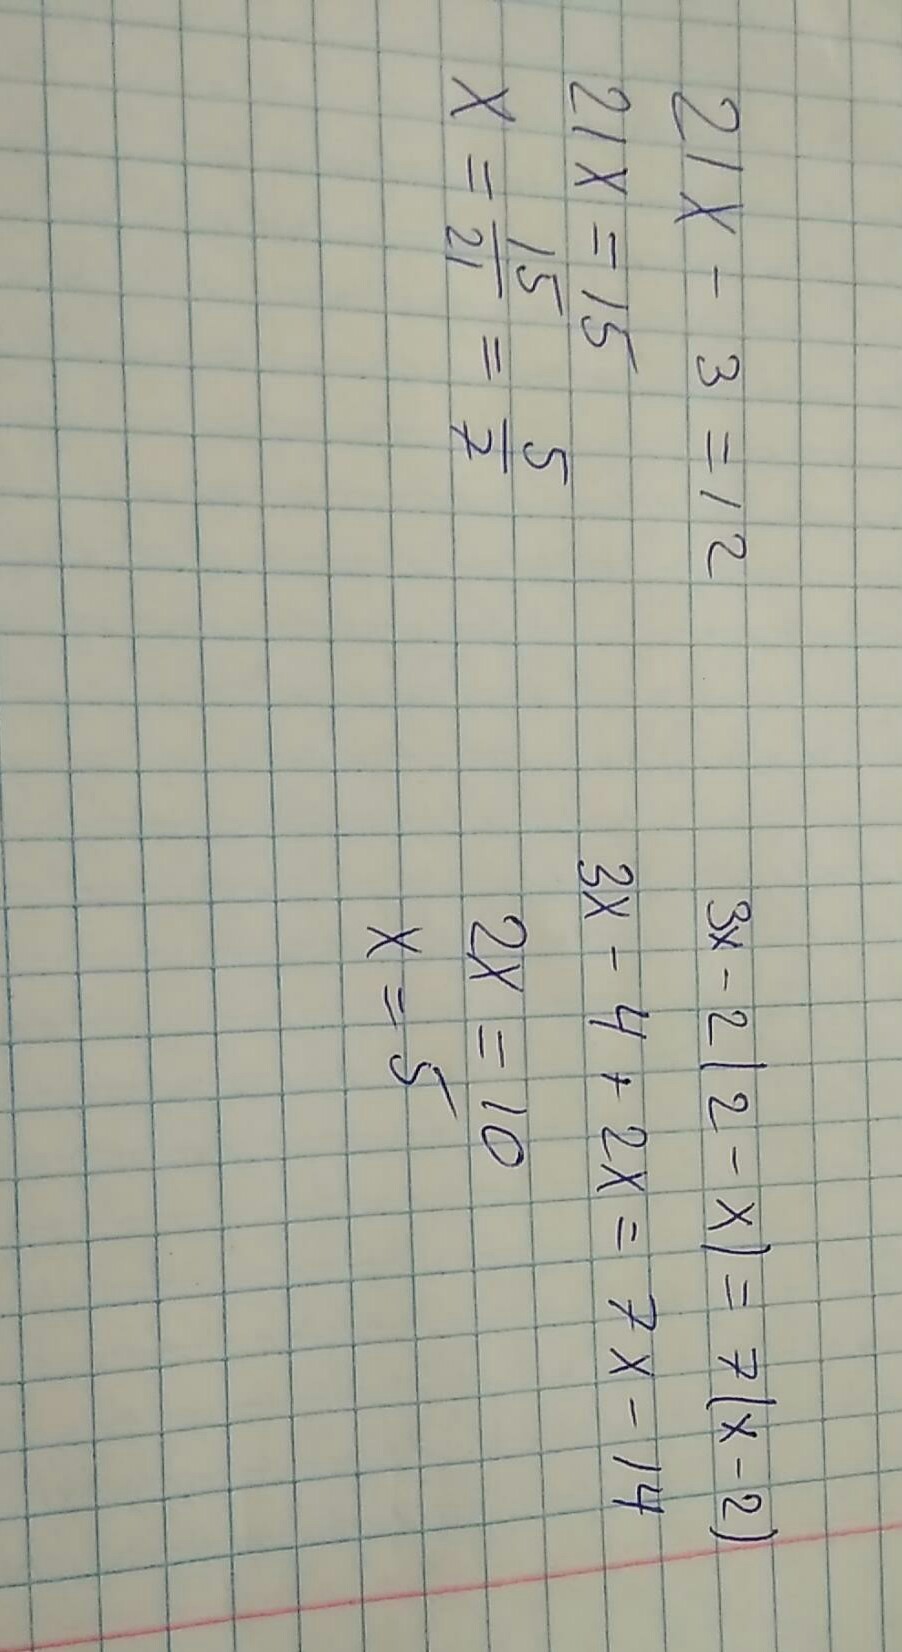 21x - 3 = 12
21x = 15
x = 15/21 = 5/7
3x - 2(2 - x) = 7(x - 2)
3x - 4 + 2x = 7x - 14
2x = 10
x = 5